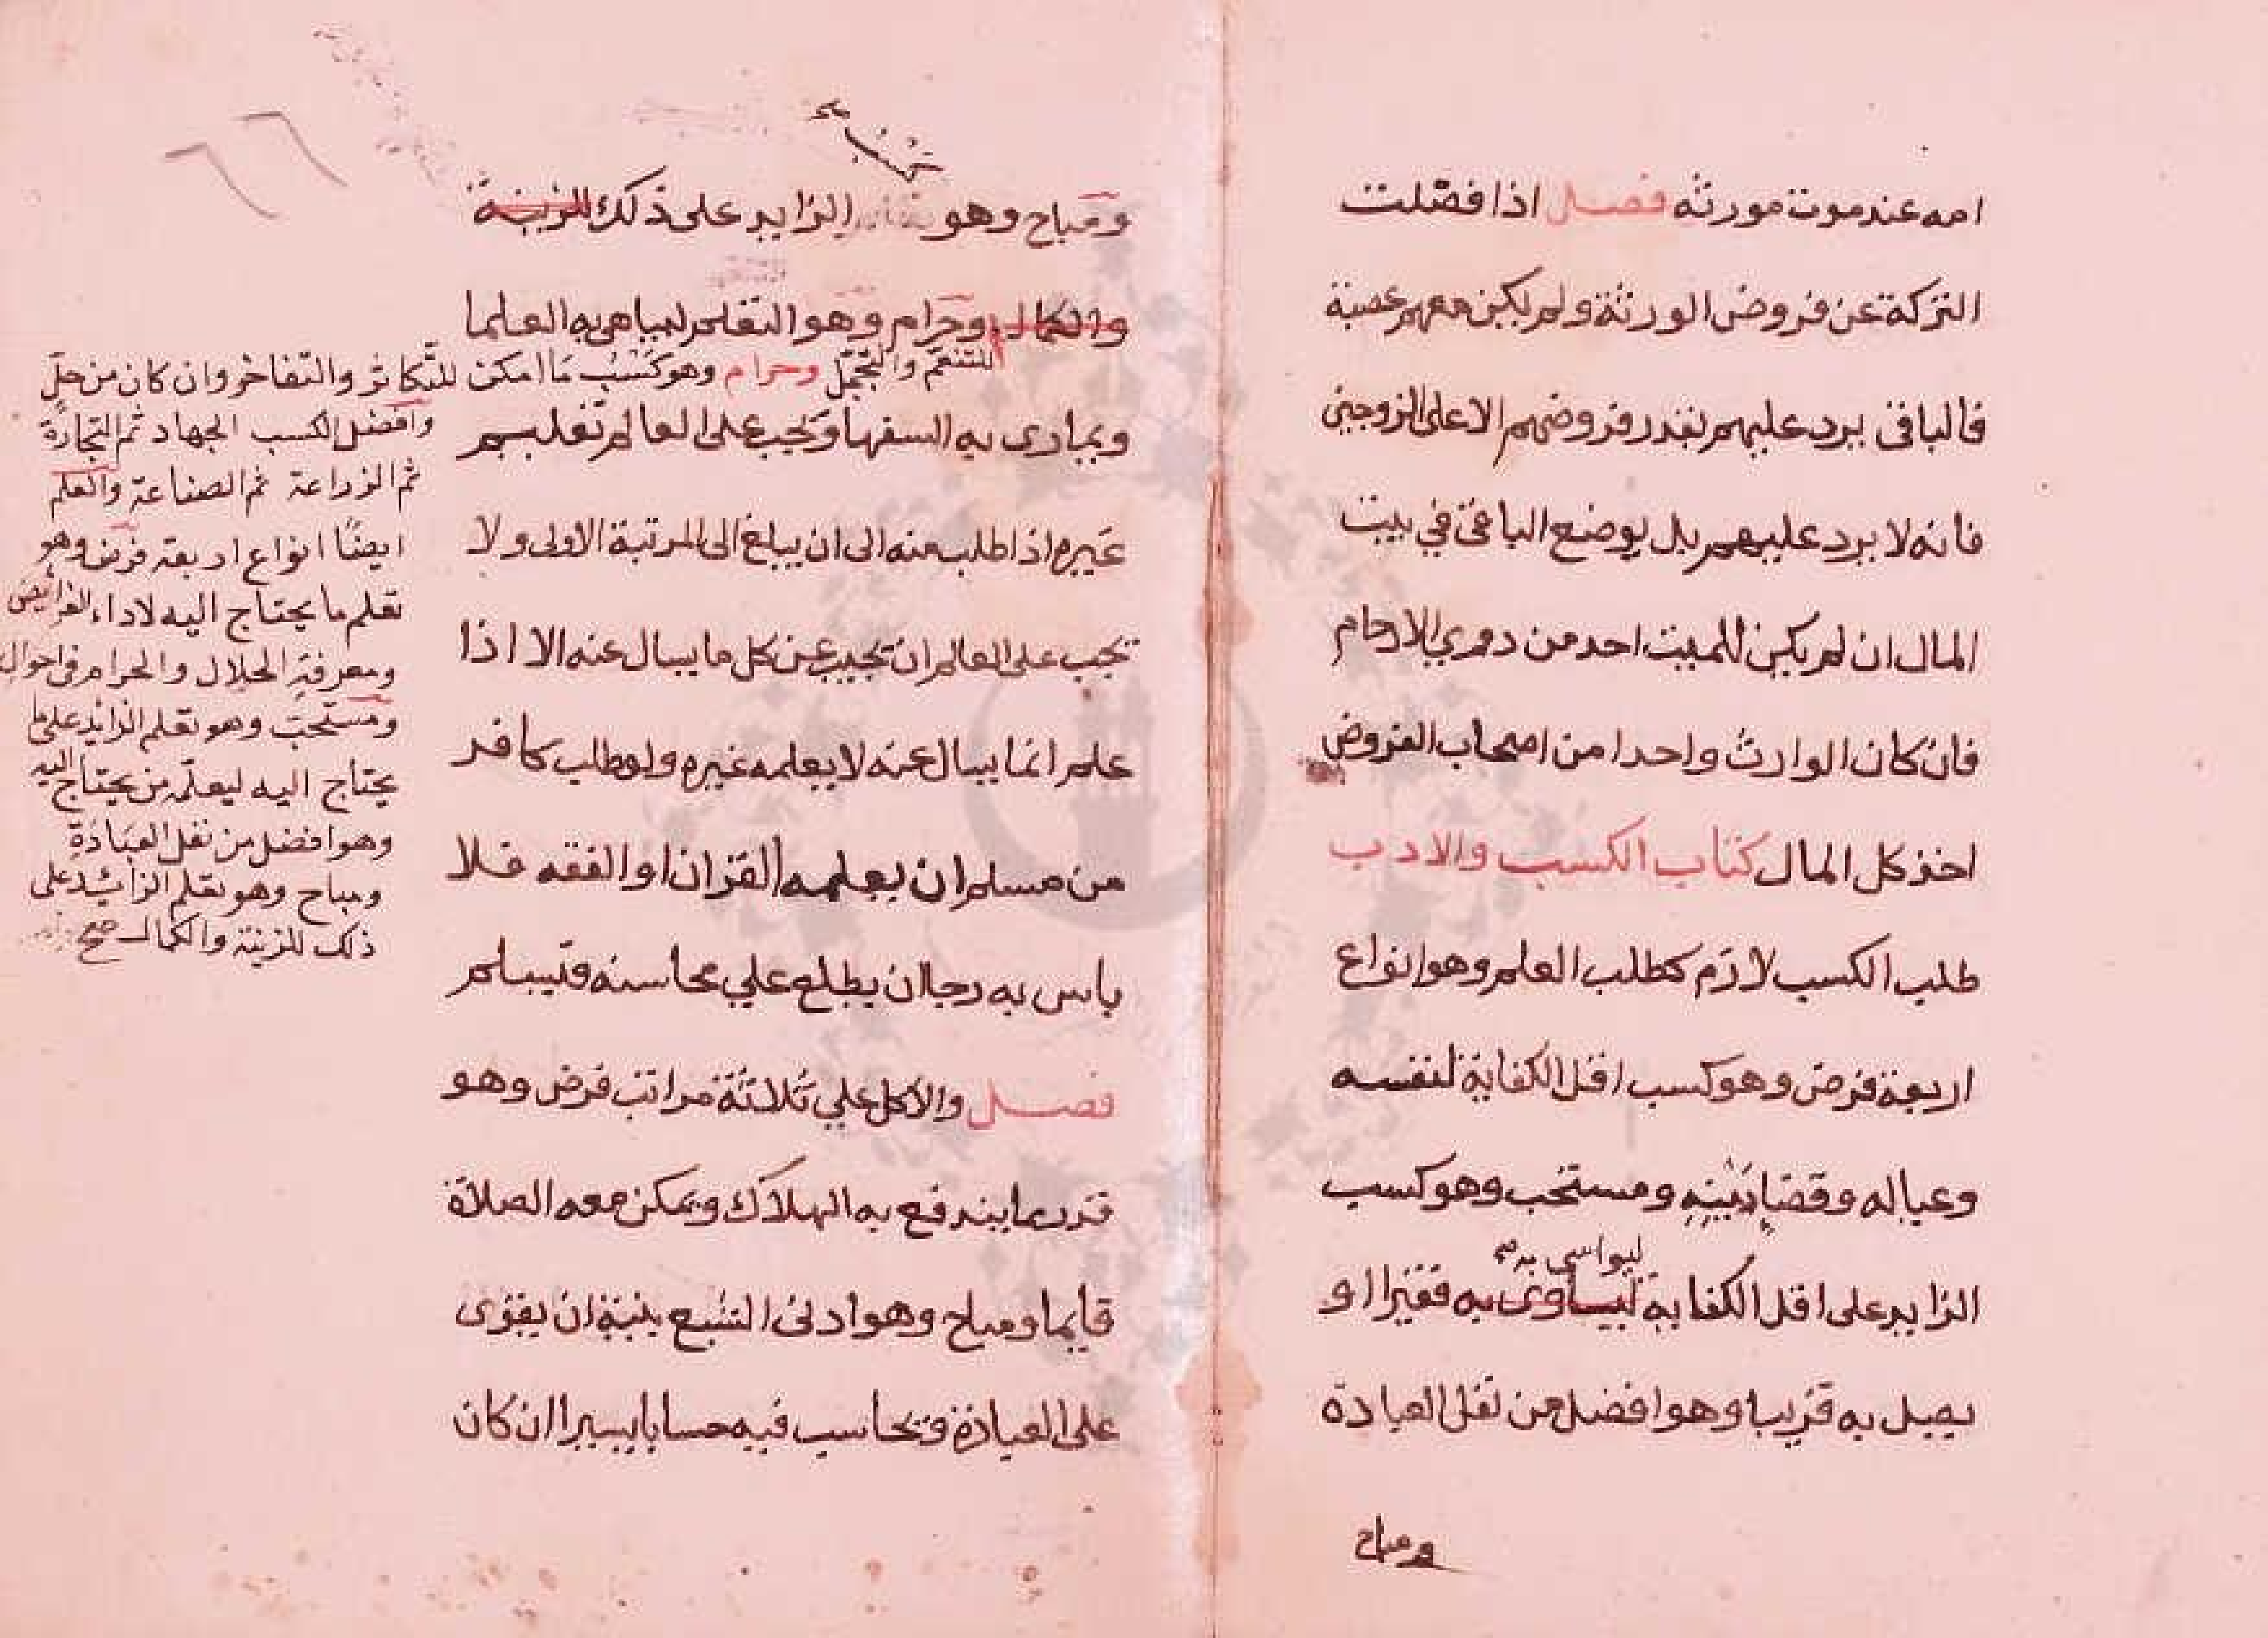 امه عند موت مورثه فصل اذا فضلت
التركة عن فروض الورثة ولم يكن معهم عصبة
فالباقى يرد عليهم بقدر فروضهم الا على الزوجين
فانه لا يرد عليهم بل يوضع الباقى في بيت
المال ان لم يكن للميت احد من ذوي الارحام
فان كان الوارث واحدا من اصحاب الفروض
اخذ كل المال كتاب الكسب والادب
طلب الكسب لازم كطلب العلم وهو انواع
اربعة فرض وهو كسب اقل الكفاية لنفسه
وعياله وقضا دينه ومستحب وهو كسب
ليواسى به صح
الزايد على اقل الكفاية ليساوى به فقيرا او
يصل به قريبا وهو افضل من نفل العبادة
ومباح
ومباح وهو الزايد على ذلك للزينة
والكمال وحرام وهو التعلم ليباهى به العلما
ويمارى به السفها ويجب على العالم تعليم
غيره اذا طلب منه الى ان يبلغ الى المرتبة الاولى ولا
يجب على العالم ان يجيب عن كل ما يسال عنه الا اذا
علم انما يسال عنه لا يعلمه غيره ولو طلب كافر
من مسلم ان يعلمه القران او الفقه فلا
باس به رجا ان يطلع علي محاسنه فيسلم
فصل والاكل علي ثلاثة مراتب فرض وهو
قدر ما يندفع به الهلاك ويمكن معه الصلاة
قايما ومباح وهو ادنى الشبع بنية ان يقوى
على العبادة ويحاسب فيه حسابا يسيرا ان كان
للتنعم والتجمل وحرام وهو كسب ما امكن للتكاثر والتفاخر وان كان من حل
وافضل الكسب الجهاد ثم التجارة
ثم الزراعة ثم الصناعة والعلم
ايضًا انواع اربعة فرض وهو
تعلم ما يحتاج اليه لاداء الفرائض
ومعرفة الحلال والحرام فى احوال
ومستحب وهو تعلم الزائد على ما
يحتاج اليه ليعلم من يحتاج اليه
وهو افضل من نفل العبادة
ومباح وهو تعلم الزائد على
ذلك للزينة والكمال صح
٦٦